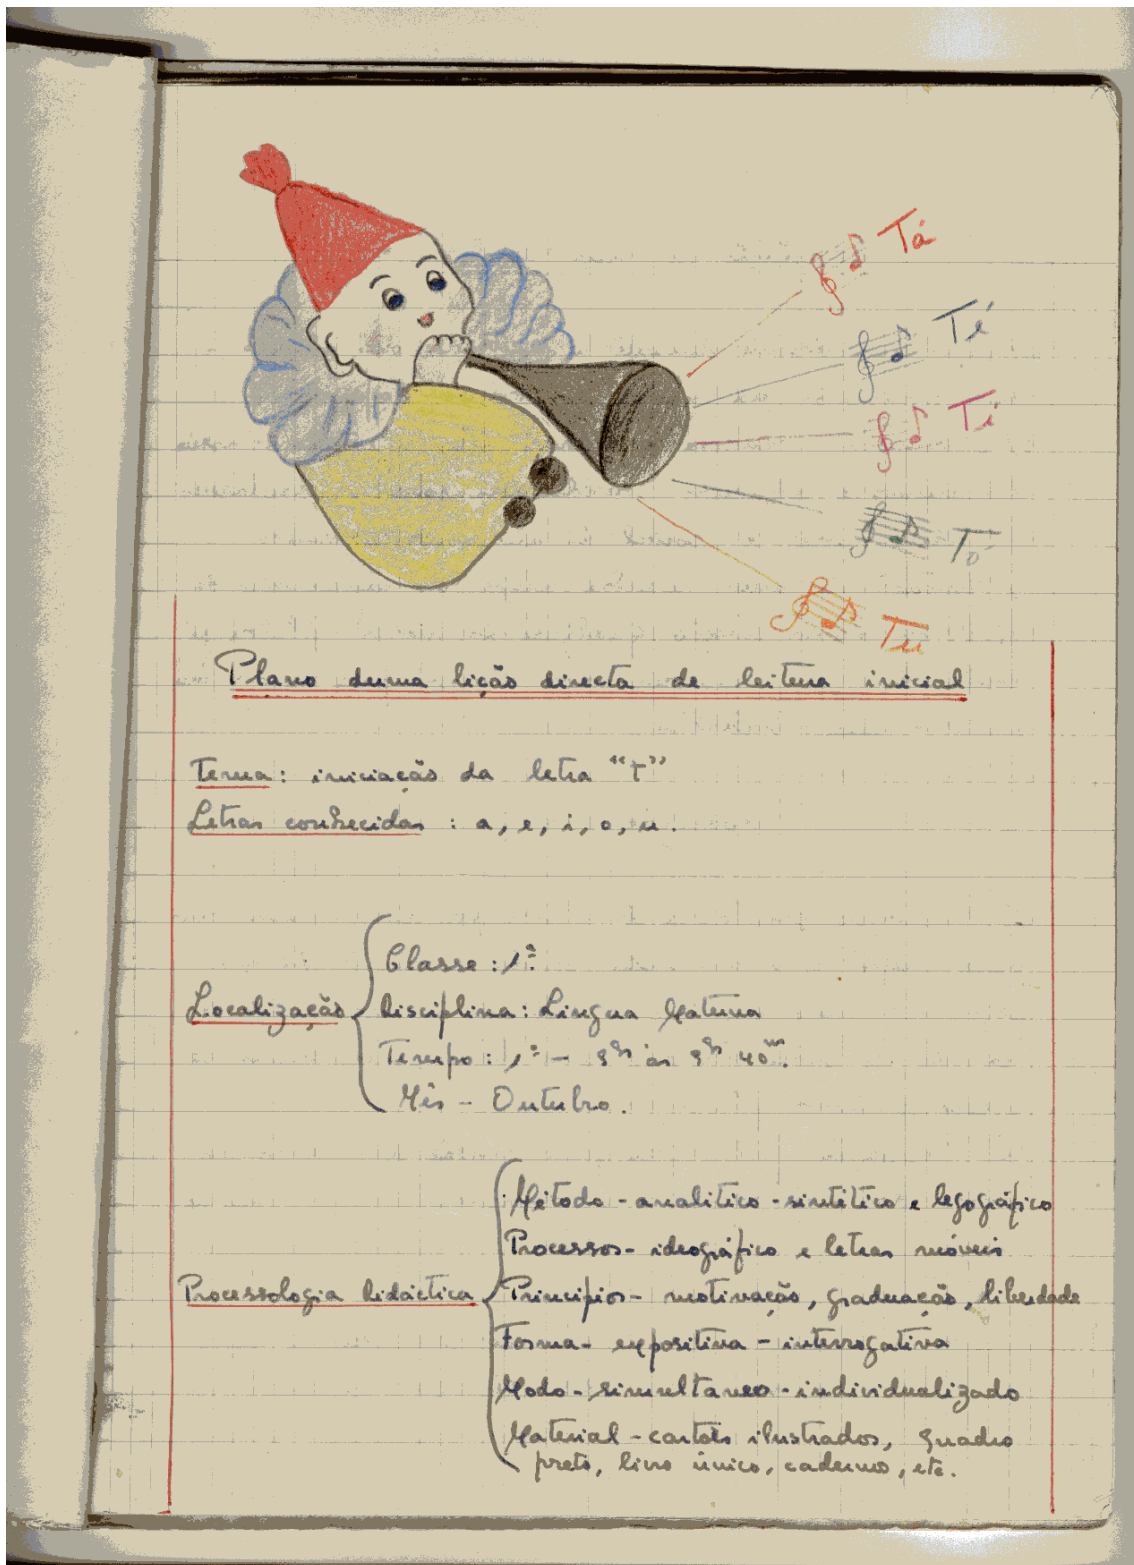 Tá
Té
Ti
Tó
Tu
Plano duma lição directa de leitura inicial
Tema: iniciação da letra "T"
Letras conhecidas: a, e, i, o, u.
Localização
Classe: 1ª
Disciplina: Lingua Materna
Tempo: 1º - 9hs às 9hs 40m.
Mês - Outubro.
Processologia Didáctica
Método - analitico - sintético e legográfico
Processos - ideográfico e letras móveis
Princípios - motivação, graduação, liberdade
Forma - expositiva - interrogativa
Modo - simultaneo - individualizado
Material - cartões ilustrados, quadro
preto, livro único, caderno, etc.